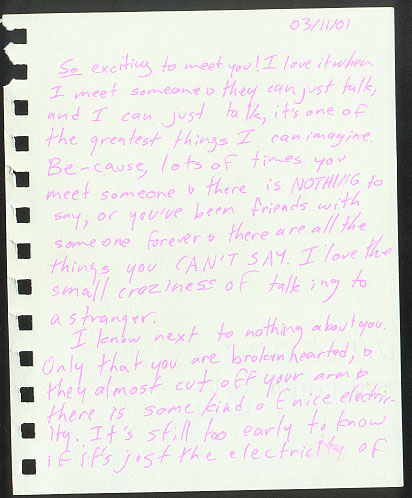 03/11/01
So exciting to meet you! I love it when
I meet someone & they can just talk,
and I can just talk, it's one of
the greatest things I can imagine.
Be-cause, lots of times you
meet someone & there is NOTHING to
say, or you've been friends with
someone forever & there are all the
things you CAN'T SAY. I love the
small craziness of talking to
a stranger.
I know next to nothing about you.
Only that you are brokenhearted, &
they almost cut off your arm &
there is some kind o nice electric-
ity. It's still too early to know
if it's just the electricity of